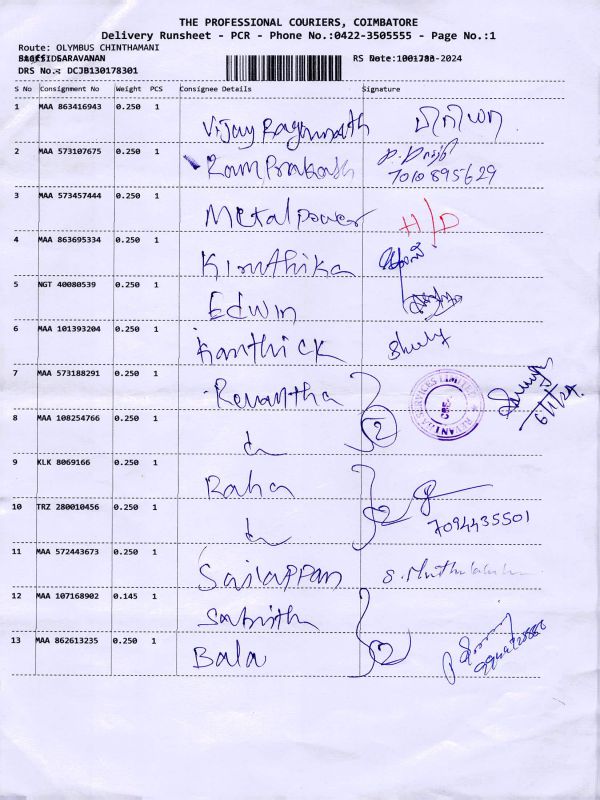 THE PROFESSIONAL COURIERS, COIMBATORE
Delivery Runsheet - PCR - Phone No.:0422-3505555 - Page No.:1
Route: OLYMBUS CHINTHAMANI
SARAVANAN
RS Date:                 -2024
DRS No.: DCJB130178301
S No Consignment No Weight PCS Consignee Details Signature
1 MAA 863416943 0.250 1 Vijay Ragunnath
2 MAA 573107675 0.250 1 Ram Prakash 7010895629
3 MAA 573457444 0.250 1 Metal power H/D
4 MAA 863695334 0.250 1 Kiruthika
5 NGT 40080539 0.250 1 Edwin
6 MAA 101393204 0.250 1 Kanthick
7 MAA 573188291 0.250 1 Revantha 6/1/24
8 MAA 108254766 0.250 1 2
9 KLK 8069166 0.250 1 Raha
10 TRZ 280010456 0.250 1 2 7094435501
11 MAA 572443673 0.250 1 Sailappan
12 MAA 107168902 0.145 1 Sabirith
13 MAA 862613235 0.250 1 Bala 2